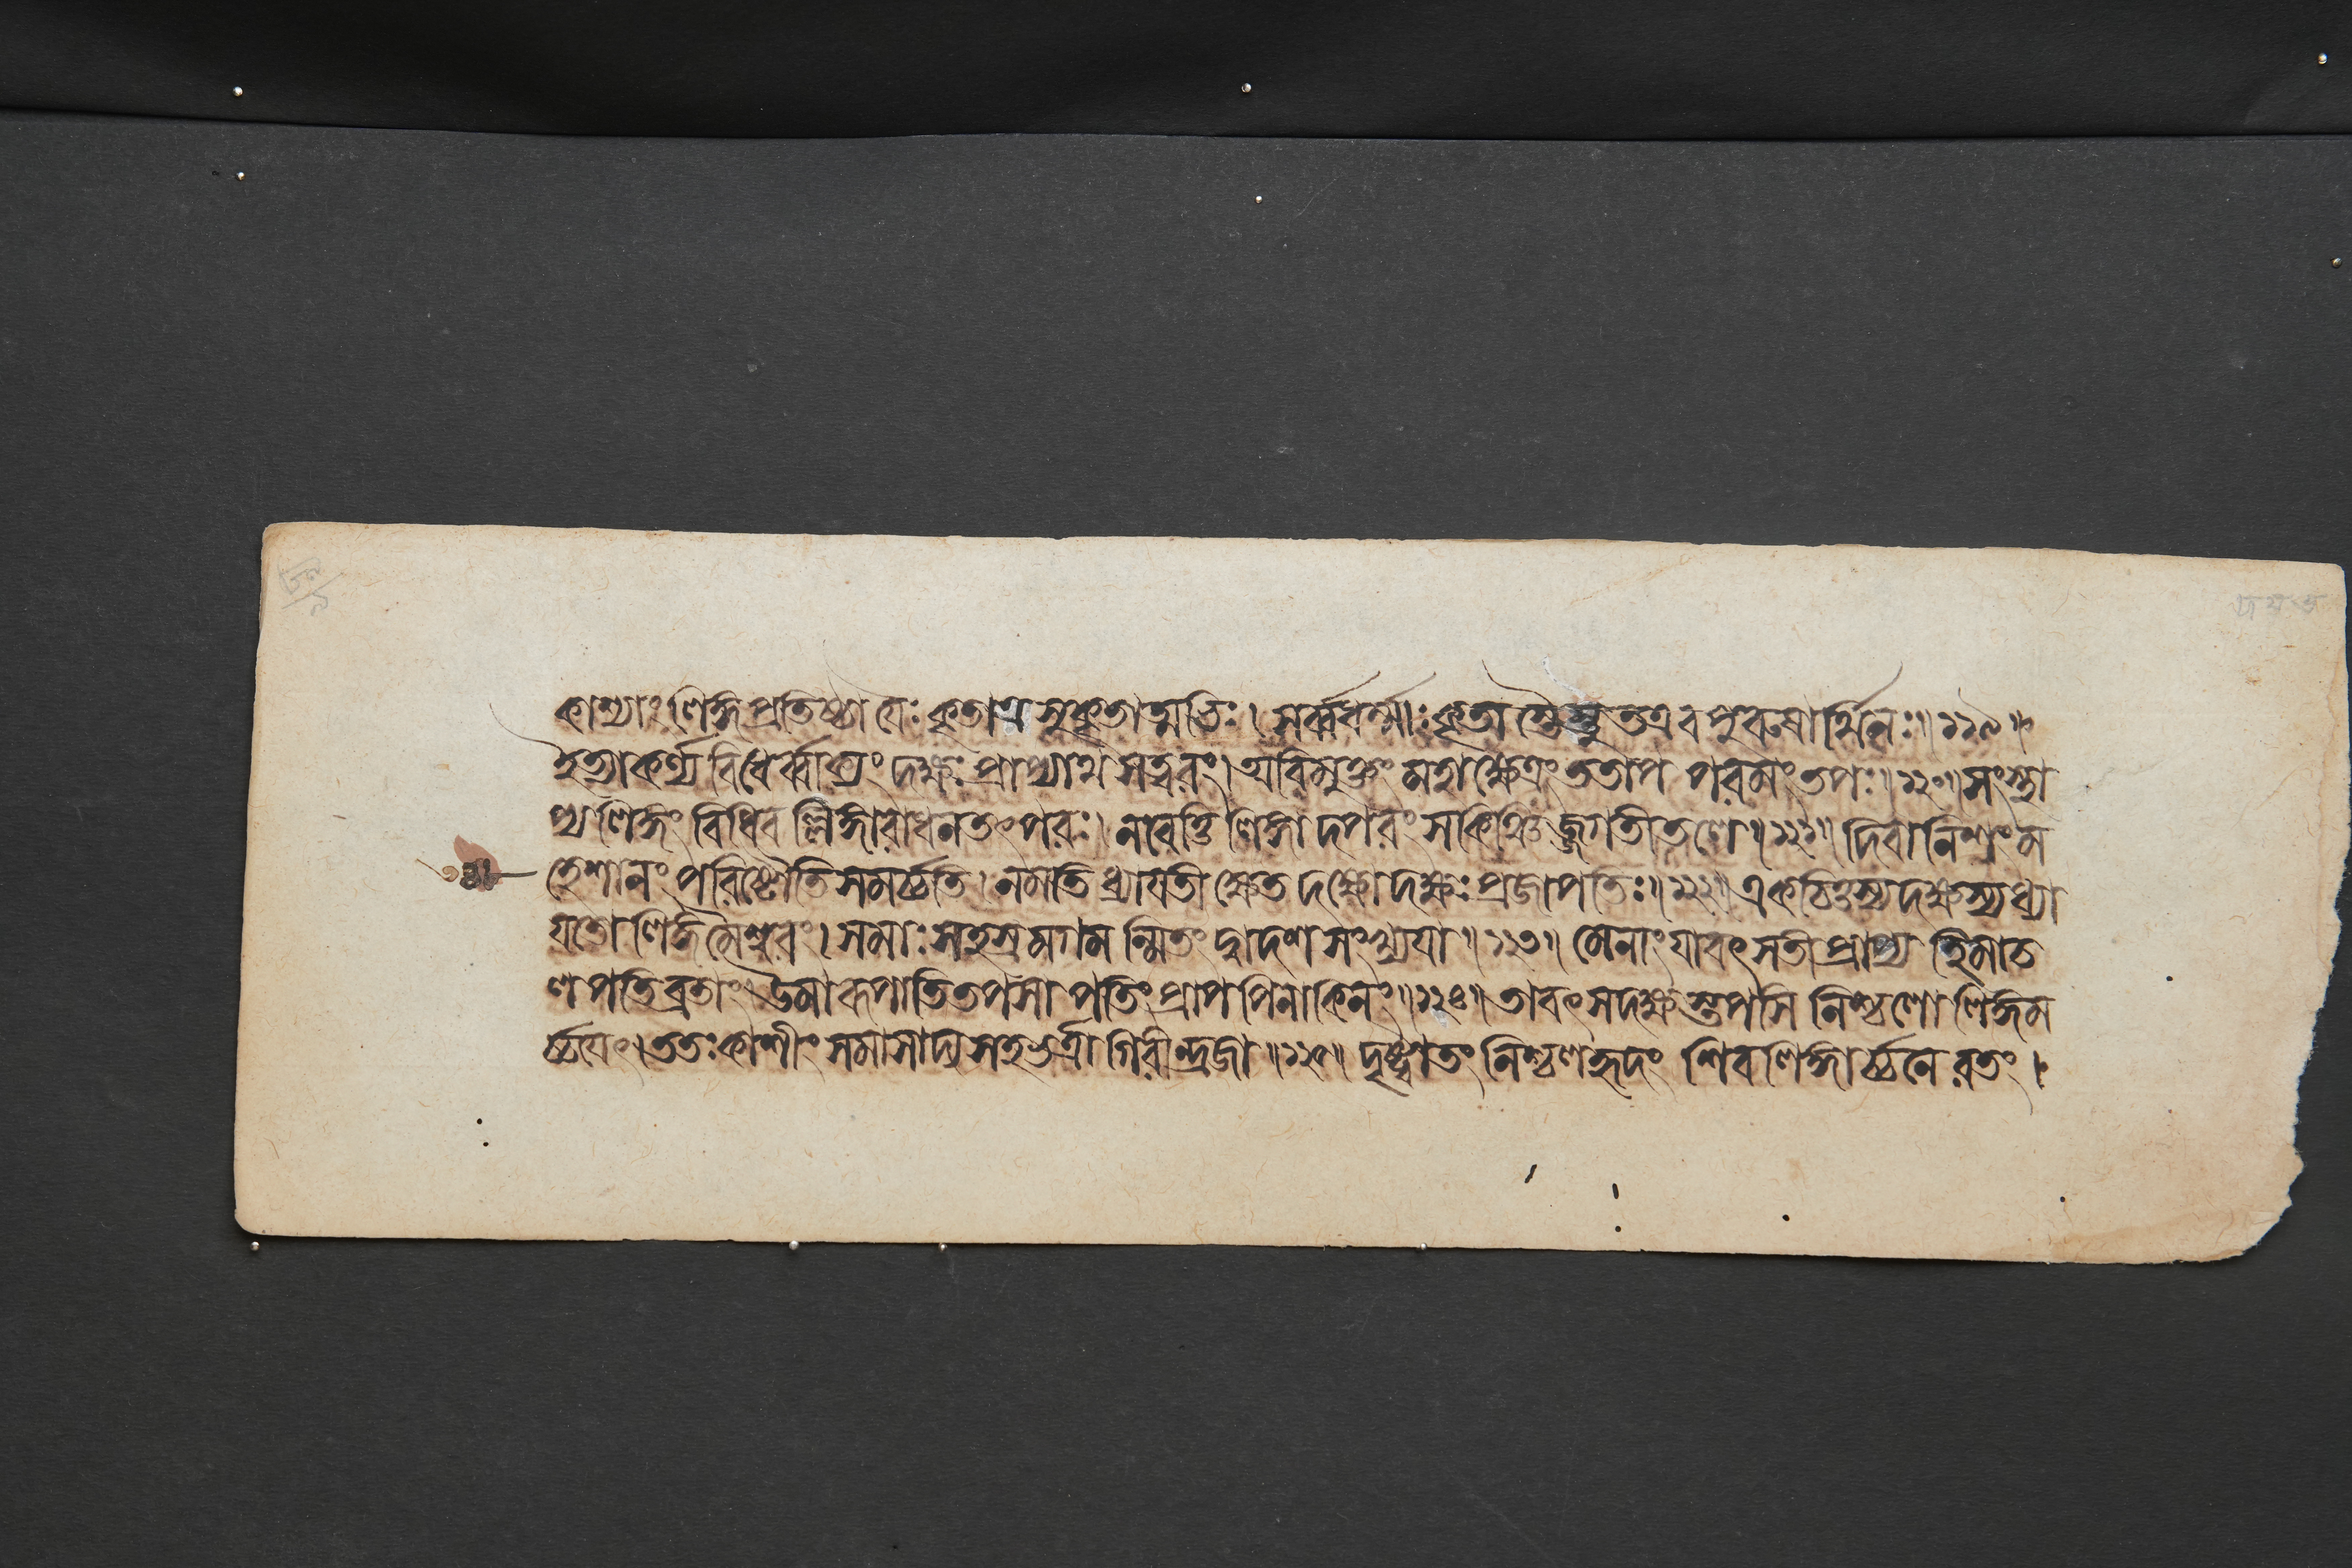 কাশ্যাং লিঙ্গপ্রতিষ্ঠা যৈঃ কৃতাত্র সুকৃতাত্মভিঃ। সর্ব্বধর্ম্মাঃ কৃতাস্তৈস্তু ত এব পুরুষার্থিনঃ॥১১৯॥
ইত্যাকর্ণ্য বিধের্ব্বাক্যং দক্ষঃ প্রাপ্যাথ সত্বরং। অবিমুক্তং মহাক্ষেত্রং ততাপ পরমং তপঃ॥১২০॥ সংস্থা
প্য লিঙ্গং বিধিবল্লিঙ্গারাধনতৎপরঃ। ন বেত্তি লিঙ্গাদপরং স কিঞ্চিজ্জগতীতলে॥১২১॥ দিবানিশং ম
হেশানং পরিষ্টৌতি সমর্চ্চতি। নমতি ধ্যায়তীক্ষেত দক্ষো দক্ষঃ প্রজাপতিঃ॥১২২॥ একচিত্তস্য দক্ষস্য ধ্যা
য়তো লিঙ্গমৈশ্বরং। সমাঃ সহস্রমগমন্মিতং দ্বাদশসংখ্যয়া॥১২৩॥ মেনাং যাবৎ সতী প্রাপ্য হিমাচ
লপতিব্রতাং। উমারূপাতিতপসা পতিং প্রাপ পিনাকিনং॥১২৪॥ তাবৎ স দক্ষস্তপসি নিশ্চলো লিঙ্গম
র্চ্চয়ৎ। ততঃ কাশীং সমাসাদ্য সহ ভর্ত্রা গিরীন্দ্রজা॥১২৫॥ দৃষ্ট্বা তং নিশ্চলহৃদং শিবলিঙ্গার্চ্চনে রতং।